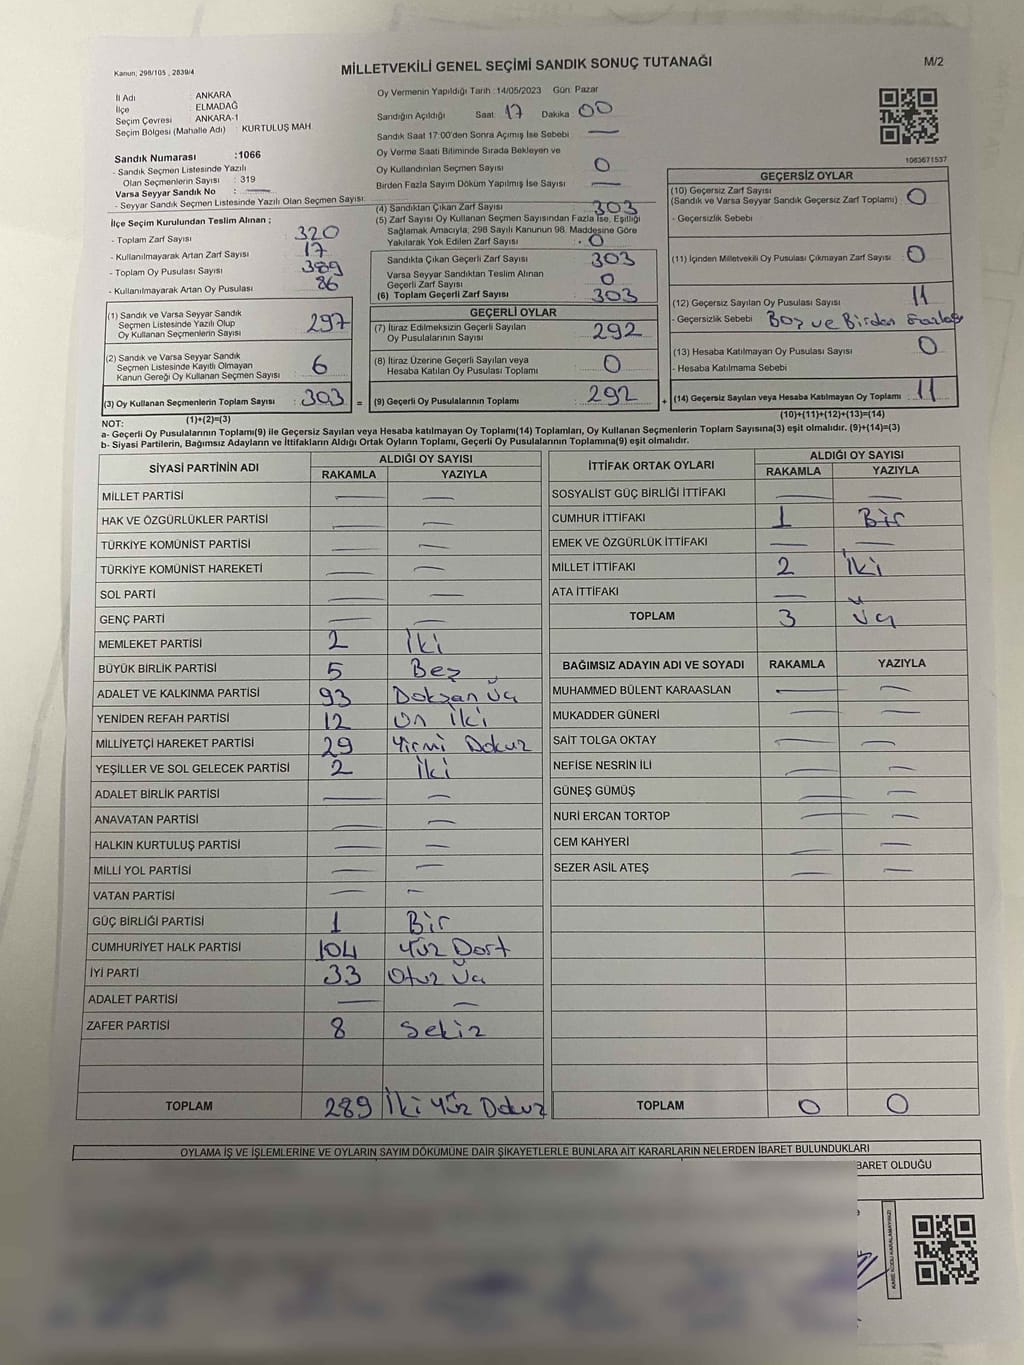 Kanun; 298/105 , 2839/4
MİLLETVEKİLİ GENEL SEÇİMİ SANDIK SONUÇ TUTANAĞI
M/2
İl Adı : ANKARA
İlçe : ELMADAĞ
Seçim Çevresi : ANKARA-1
Seçim Bölgesi (Mahalle Adı) : KURTULUŞ MAH
Sandık Numarası :1066
- Sandık Seçmen Listesinde Yazılı
Olan Seçmenlerin Sayısı : 319
Varsa Seyyar Sandık No : —
- Seyyar Sandık Seçmen Listesinde Yazılı Olan Seçmen Sayısı:
İlçe Seçim Kurulundan Teslim Alınan ;
- Toplam Zarf Sayısı : 320
- Kullanılmayarak Artan Zarf Sayısı : 17
- Toplam Oy Pusulası Sayısı : 389
- Kullanılmayarak Artan Oy Pusulası : 86
(1) Sandık ve Varsa Seyyar Sandık
Seçmen Listesinde Yazılı Olup
Oy Kullanan Seçmenlerin Sayısı : 297
(2) Sandık ve Varsa Seyyar Sandık
Seçmen Listesinde Kayıtlı Olmayan
Kanun Gereği Oy Kullanan Seçmen Sayısı : 6
(3) Oy Kullanan Seçmenlerin Toplam Sayısı : 303 =
(1)+(2)=(3)
Oy Vermenin Yapıldığı Tarih :14/05/2023 Gün: Pazar
Sandığın Açıldığı Saat: 17 Dakika: 00
Sandık Saat 17:00'den Sonra Açımış İse Sebebi : —
Oy Verme Saati Bitiminde Sırada Bekleyen ve
Oy Kullandırılan Seçmen Sayısı : 0
Birden Fazla Sayım Döküm Yapılmış İse Sayısı : —
(4) Sandıktan Çıkan Zarf Sayısı : 303
(5) Zarf Sayısı Oy Kullanan Seçmen Sayısından Fazla İse, Eşitliği
Sağlamak Amacıyla; 298 Sayılı Kanunun 98. Maddesine Göre
Yakılarak Yok Edilen Zarf Sayısı : 0
Sandıkta Çıkan Geçerli Zarf Sayısı : 303
Varsa Seyyar Sandıktan Teslim Alınan
Geçerli Zarf Sayısı : 0
(6) Toplam Geçerli Zarf Sayısı : 303
GEÇERLİ OYLAR
(7) İtiraz Edilmeksizin Geçerli Sayılan
Oy Pusulalarının Sayısı : 292
(8) İtiraz Üzerine Geçerli Sayılan veya
Hesaba Katılan Oy Pusulası Toplamı : 0
(9) Geçerli Oy Pusulalarının Toplamı : 292 +
1063671537
GEÇERSİZ OYLAR
(10) Geçersiz Zarf Sayısı
(Sandık ve Varsa Seyyar Sandık Geçersiz Zarf Toplamı) : 0
- Geçersizlik Sebebi
(11) İçinden Milletvekili Oy Pusulası Çıkmayan Zarf Sayısı : 0
(12) Geçersiz Sayılan Oy Pusulası Sayısı : 11
- Geçersizlik Sebebi Boş ve Birden Fazla
(13) Hesaba Katılmayan Oy Pusulası Sayısı : 0
- Hesaba Katılmama Sebebi
(14) Geçersiz Sayılan veya Hesaba Katılmayan Oy Toplamı : 11
(10)+(11)+(12)+(13)=(14)
NOT:
a- Geçerli Oy Pusulalarının Toplamı(9) ile Geçersiz Sayılan veya Hesaba katılmayan Oy Toplamı(14) Toplamları, Oy Kullanan Seçmenlerin Toplam Sayısına(3) eşit olmalıdır. (9)+(14)=(3)
b- Siyasi Partilerin, Bağımsız Adayların ve İttifakların Aldığı Ortak Oyların Toplamı, Geçerli Oy Pusulalarının Toplamına(9) eşit olmalıdır.
SİYASİ PARTİNİN ADI
ALDIĞI OY SAYISI
RAKAMLA YAZIYLA
MİLLET PARTİSİ — —
HAK VE ÖZGÜRLÜKLER PARTİSİ — —
TÜRKİYE KOMÜNİST PARTİSİ — —
TÜRKİYE KOMÜNİST HAREKETİ — —
SOL PARTİ — —
GENÇ PARTİ — —
MEMLEKET PARTİSİ 2 İki
BÜYÜK BİRLİK PARTİSİ 5 Beş
ADALET VE KALKINMA PARTİSİ 93 Doksan Üç
YENİDEN REFAH PARTİSİ 12 On İki
MİLLİYETÇİ HAREKET PARTİSİ 29 Yirmi Dokuz
YEŞİLLER VE SOL GELECEK PARTİSİ 2 İki
ADALET BİRLİK PARTİSİ — —
ANAVATAN PARTİSİ — —
HALKIN KURTULUŞ PARTİSİ — —
MİLLİ YOL PARTİSİ — —
VATAN PARTİSİ — —
GÜÇ BİRLİĞİ PARTİSİ 1 Bir
CUMHURİYET HALK PARTİSİ 104 Yüz Dört
İYİ PARTİ 33 Otuz Üç
ADALET PARTİSİ — —
ZAFER PARTİSİ 8 Sekiz
TOPLAM 289 İki Yüz Dokuz
İTTİFAK ORTAK OYLARI
ALDIĞI OY SAYISI
RAKAMLA YAZIYLA
SOSYALİST GÜÇ BİRLİĞİ İTTİFAKI — —
CUMHUR İTTİFAKI 1 Bir
EMEK VE ÖZGÜRLÜK İTTİFAKI — —
MİLLET İTTİFAKI 2 İki
ATA İTTİFAKI —
TOPLAM 3 Üç
BAĞIMSIZ ADAYIN ADI VE SOYADI RAKAMLA YAZIYLA
MUHAMMED BÜLENT KARAASLAN — —
MUKADDER GÜNERİ — —
SAİT TOLGA OKTAY — —
NEFİSE NESRİN İLİ — —
GÜNEŞ GÜMÜŞ — —
NURİ ERCAN TORTOP — —
CEM KAHYERİ — —
SEZER ASİL ATEŞ — —
TOPLAM 0 0
OYLAMA İŞ VE İŞLEMLERİNE VE OYLARIN SAYIM DÖKÜMÜNE DAİR ŞİKAYETLERLE BUNLARA AİT KARARLARIN NELERDEN İBARET BULUNDUKLARI
BARET OLDUĞU